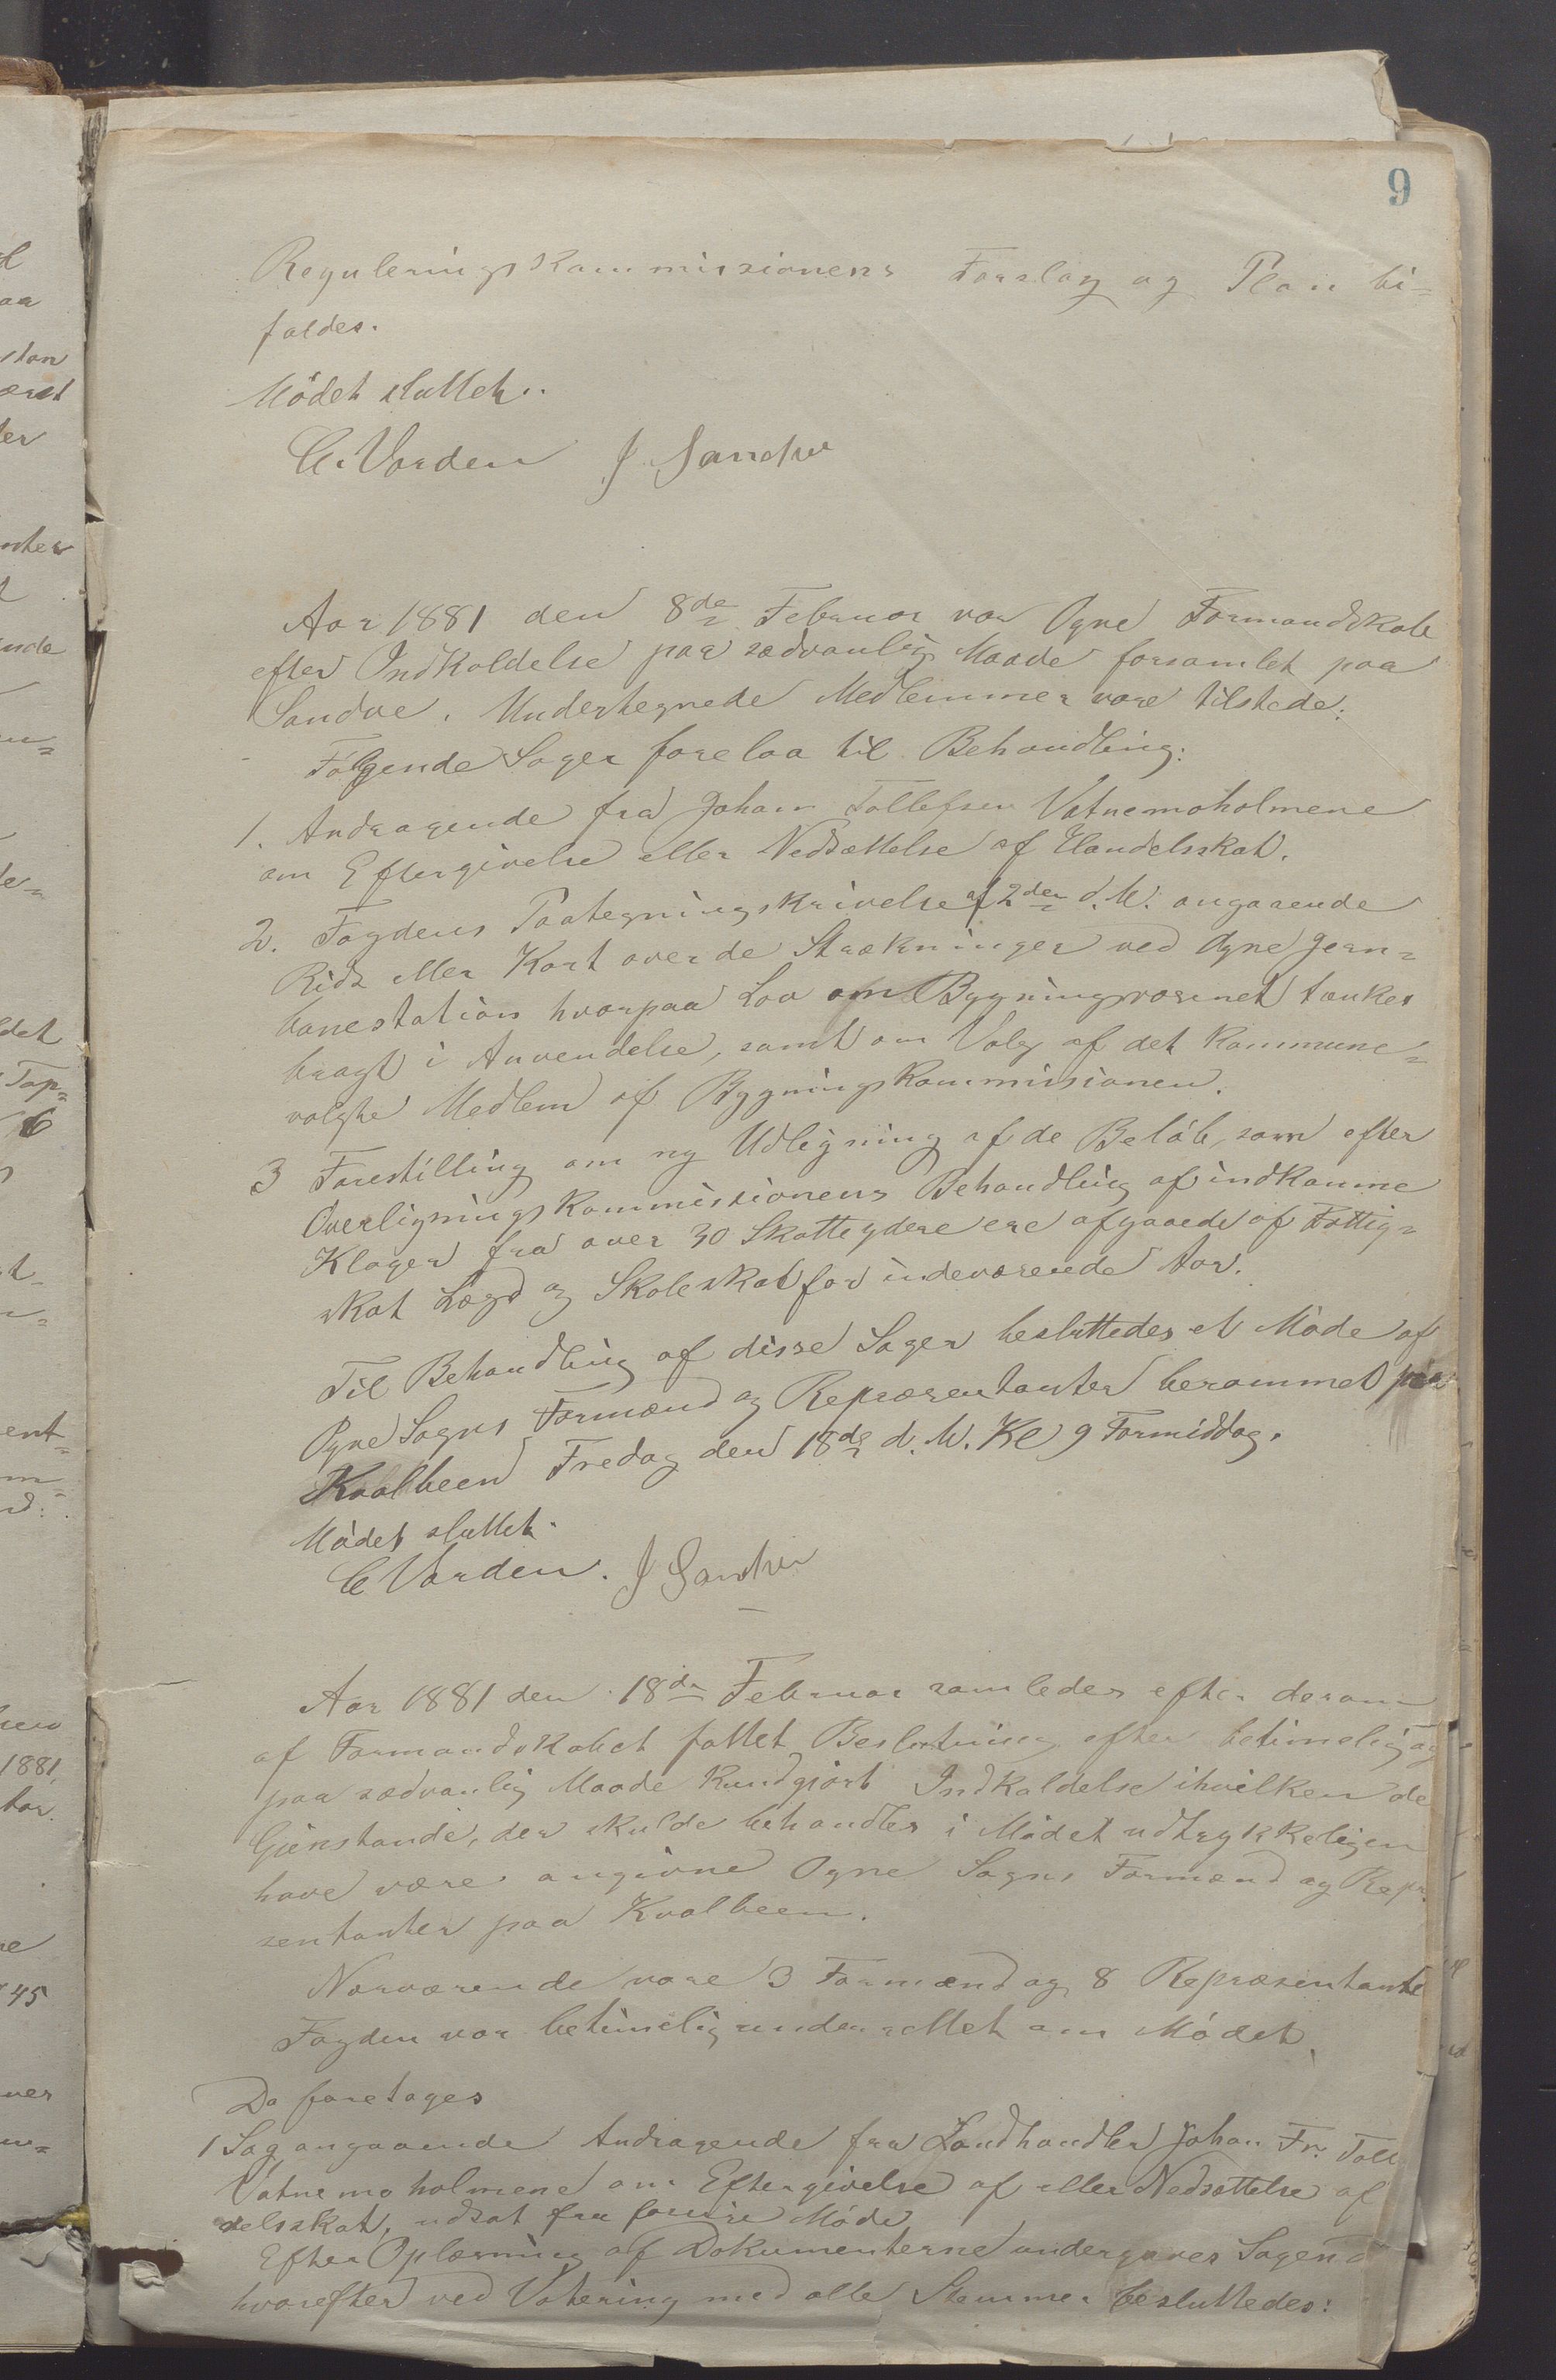 9
Reguleringskommissionens Forslag og Plan bi-
faldes.
Mødet sluttet..
C. Varden J. Sandve
Aar 1881 den 8de Februar var Ogne Formandskab
efter Indkaldelse paa sædvanlig Maade forsamlet paa
Sandve. Undertegnede Medlemmer vare tilstede:
Følgende Sager forelaa til Behandling:
1. Andragende fra Johan Tollefsen Vatnemoholmene
om Eftergivelse eller Nedsættelse af Handelsskat.
2. Fogdens Paategningskrivelse af 2den d.M. angaaende
Rids eller Kart over de Strækninger ved Ogne Jern-
banestation hvorpaa Lov om Bygningsvæsenet tænkes
bragt i Anvendelse, samt om Valg af det kommune-
valgte Medlem af Bygningskommissionen.
3 Forestilling om ny Udligning af de Beløb, som efter
Overligningskommissionens Behandling af indkomne
Klager fra over 30 Skatteydere ere afgaaede af Fattig-
skat Lægd og Skoleskat for indeværende Aar.
Til Behandling af disse Sager besluttedes et Møde af
Ogne Sogns Formænd og Repræsentanter berammet paa
Kvalbeen Fredag den 18de d.M. Kl 9 Formiddag.
Mødet sluttet.
C Varden. J Sandve
Aar 1881 den 18de Februar samledes efter derom
af Formandskabet fattet Beslutning efter betimelig og
paa sædvanlig Maade kundgjort Indkaldelse ihvilken de
Gjenstande, der skulde behandles i Mødet udtrykkeligen
have være angivne Ogne Sogns Formænd og Repr
sentanter paa Kvalbeen.
Nærværende vare 3 Formænd og 8 Repræsentante
Fogden var betimelig underrettet om Mødet.
Da foretages
1 Sag angaaende Andragende fra Landhandler Johan Fr. Toll
Vatnemoholmene om Eftergivelse af eller Nedsættelse af
delsskat, udsat fra forrige Møde
Efter Oplæsning af Dokumenterne undergaves Sagen
hvorefter ved Votering med alle Stemmer besluttedes: